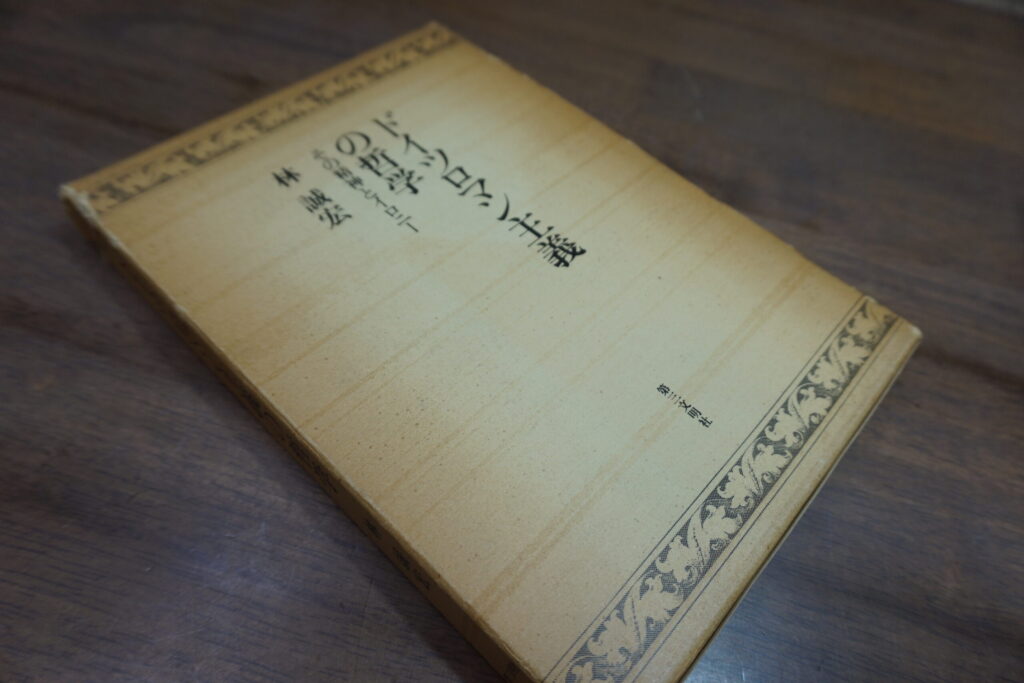 ドイツロマン主義
の哲学
その精神とイロニー
林 誠宏
第三文明社